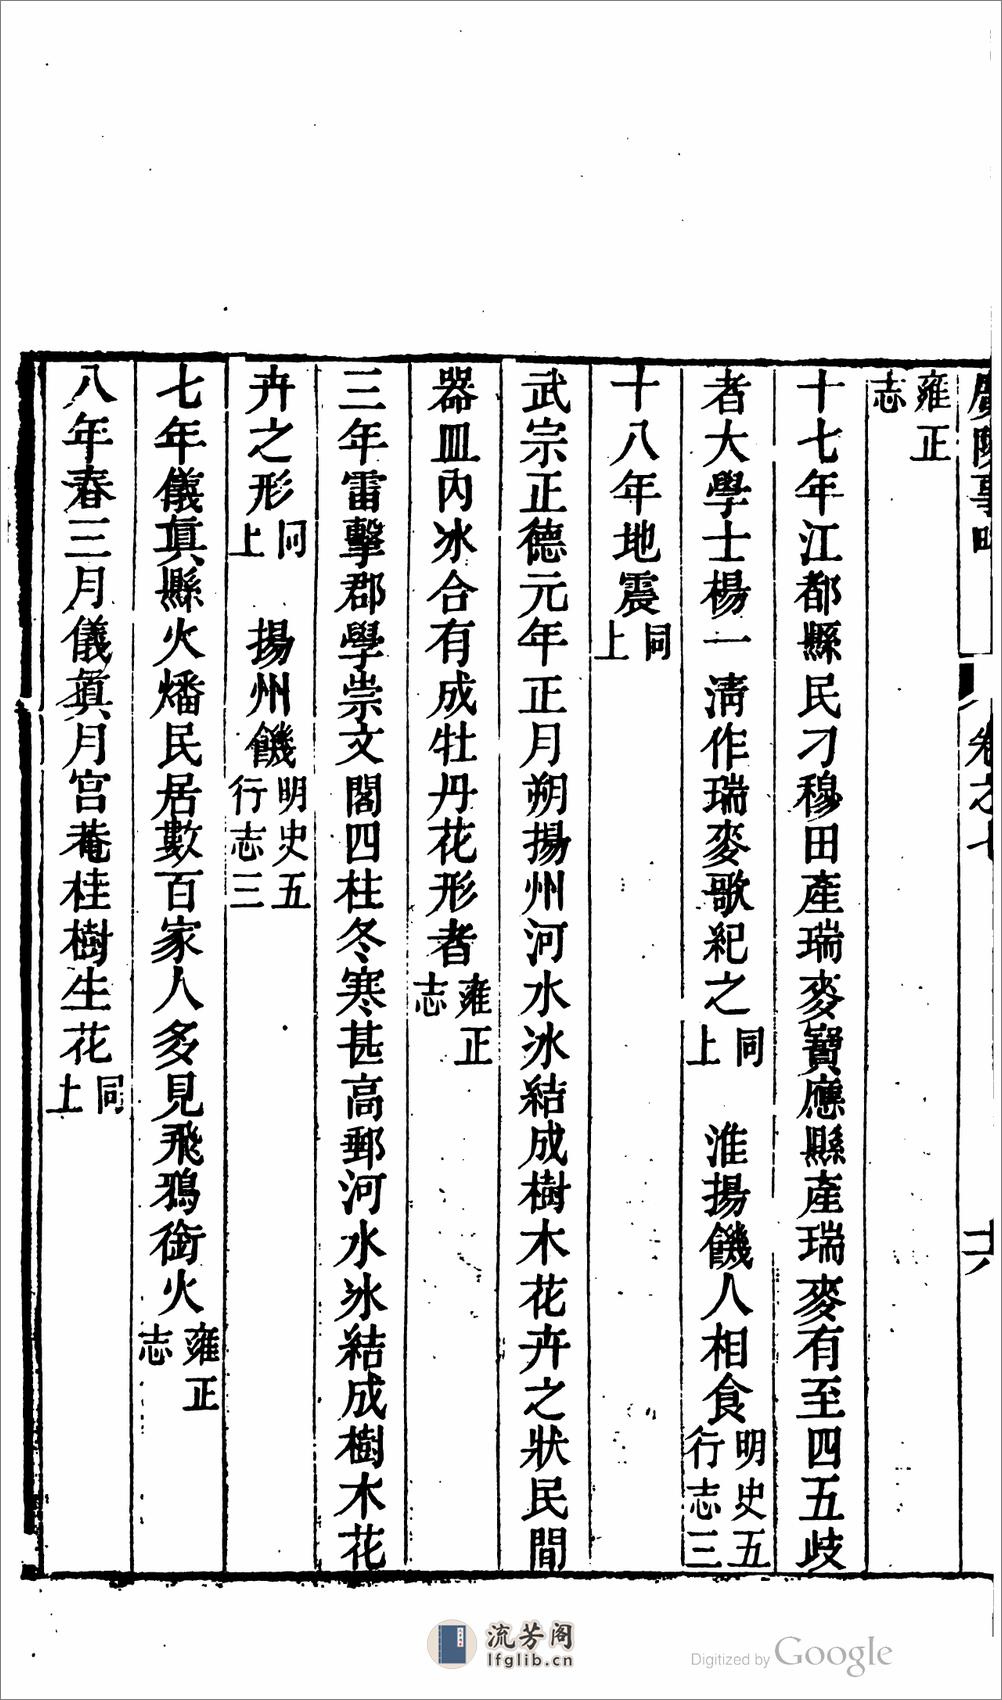 廣陵事略 卷之七 十六
雍正志
十七年江都縣民刁穆田產瑞麥寶應縣產瑞麥有至四五歧
者大學士楊一清作瑞麥歌紀之同上 淮揚饑人相食明史五行志三
十八年地震同上
武宗正德元年正月朔揚州河水冰結成樹木花卉之狀民間
器皿內冰合有成牡丹花形者雍正志
三年雷擊郡學崇文閣四柱冬寒甚高郵河水冰結成樹木花
卉之形同上 揚州饑明史五行志三
七年儀真縣火燔民居數百家人多見飛鴉銜火雍正志
八年春三月儀真月宮菴桂樹生花同上
流芳阁
lfglib.cn
Digitized by Google